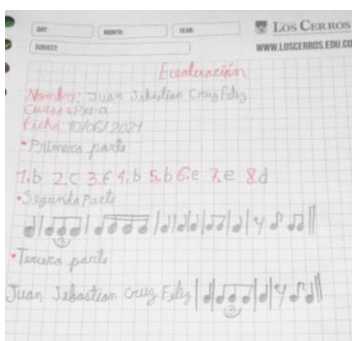 DAY: MONTH: YEAR: LOS CERROS
SUBJECT: WWW.LOSCERROS.EDU.CO
Evaluación
Nombre: Juan Sebastian Cruz Feliz
Curso:
Fecha: 10/06/2021
• Primera parte
1.b 2.c 3.e 4.b 5.b 6.e 7.e 8.d
• Segunda Parte
3
• Tercera parte
Juan Sebastian Cruz Feliz
3